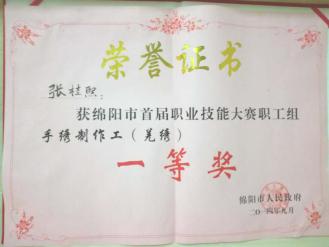 荣誉证书
张桂熙：
获绵阳市首届职业技能大赛职工组
手绣制作工（羌绣）
一等奖
绵阳市人民政府
二〇一四年九月